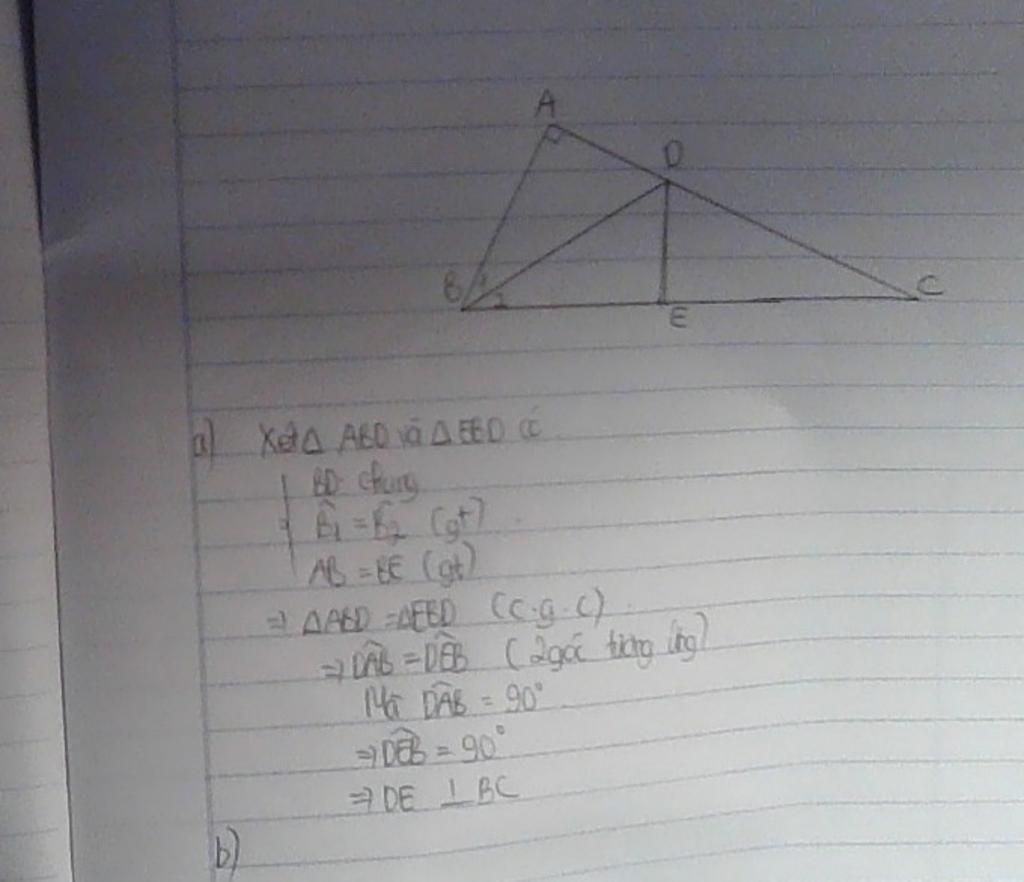 A
D
B 1
2
E
C
a) Xét Δ ABD và Δ EBD có
BD chung
B̂₁ = B̂₂ (gt)
AB = BE (gt)
⇒ ΔABD = ΔEBD (c.g.c)
⇒ DÂB = DÊB (2 góc tương ứng)
Mà DÂB = 90°
⇒ DÊB = 90°
⇒ DE ⊥ BC
b)